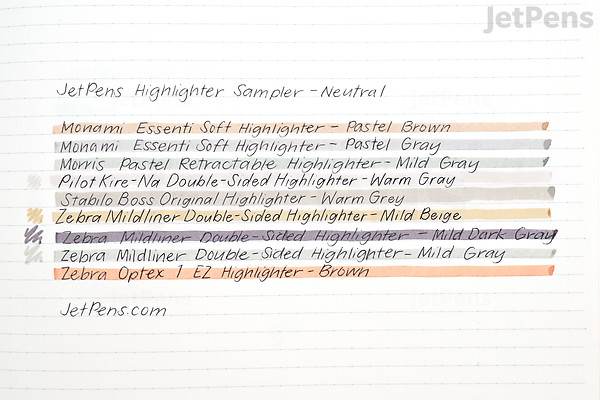 JetPens
JetPens Highlighter Sampler - Neutral
Monami Essenti Soft Highlighter - Pastel Brown
Monami Essenti Soft Highlighter - Pastel Gray
Morris Pastel Retractable Highlighter - Mild Gray
Pilot Kire-Na Double-Sided Highlighter - Warm Gray
Stabilo Boss Original Highlighter - Warm Grey
Zebra Mildliner Double-Sided Highlighter - Mild Beige
Zebra Mildliner Double-Sided Highlighter - Mild Dark Gray
Zebra Mildliner Double-Sided Highlighter - Mild Gray
Zebra Optex 1 EZ Highlighter - Brown
JetPens.com